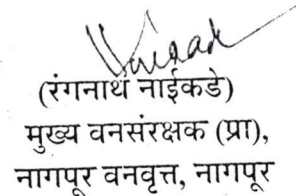 (रंगनाथ नाईकडे)
मुख्य वनसंरक्षक (प्रा),
नागपूर वनवृत्त, नागपूर